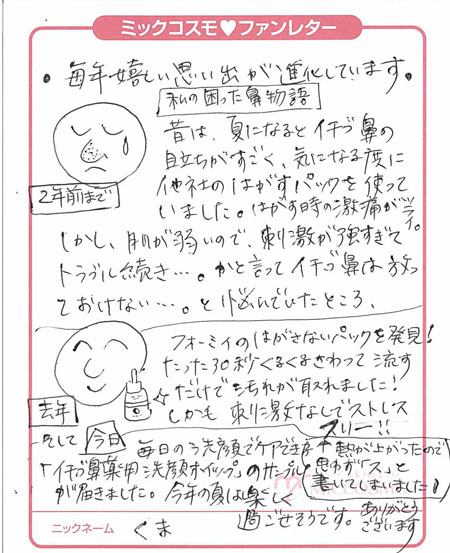 ミックコスモ♥ファンレター
・毎年嬉しい思い出が進化しています。
私の困った鼻物語
昔は、夏になるとイチゴ鼻の
目立ちがすごく、気になる度に
他社のはがすパックを使って
いました。はがす時の激痛がツライ。
2年前まで
しかし、肌が弱いので、刺激が強すぎて
トラブル続き…。かと言ってイチゴ鼻は放っ
ておけない…。と悩んでいたところ、
フォーミィのはがさないパックを発見!
たった30秒くるくるさわって流す
だけで汚れが取れました!
しかも刺激なしでストレス
フリー!!
去年
そして今日
毎日の洗顔でケアできる
「イチゴ鼻薬用洗顔ホイップ」のサンプル
が届きました。今年の夏は楽しく
過ごせそうです。
熱が上がったので
思わず「ス」と
書いてしまいました!
ありがとう
ございます
ニックネーム
くま